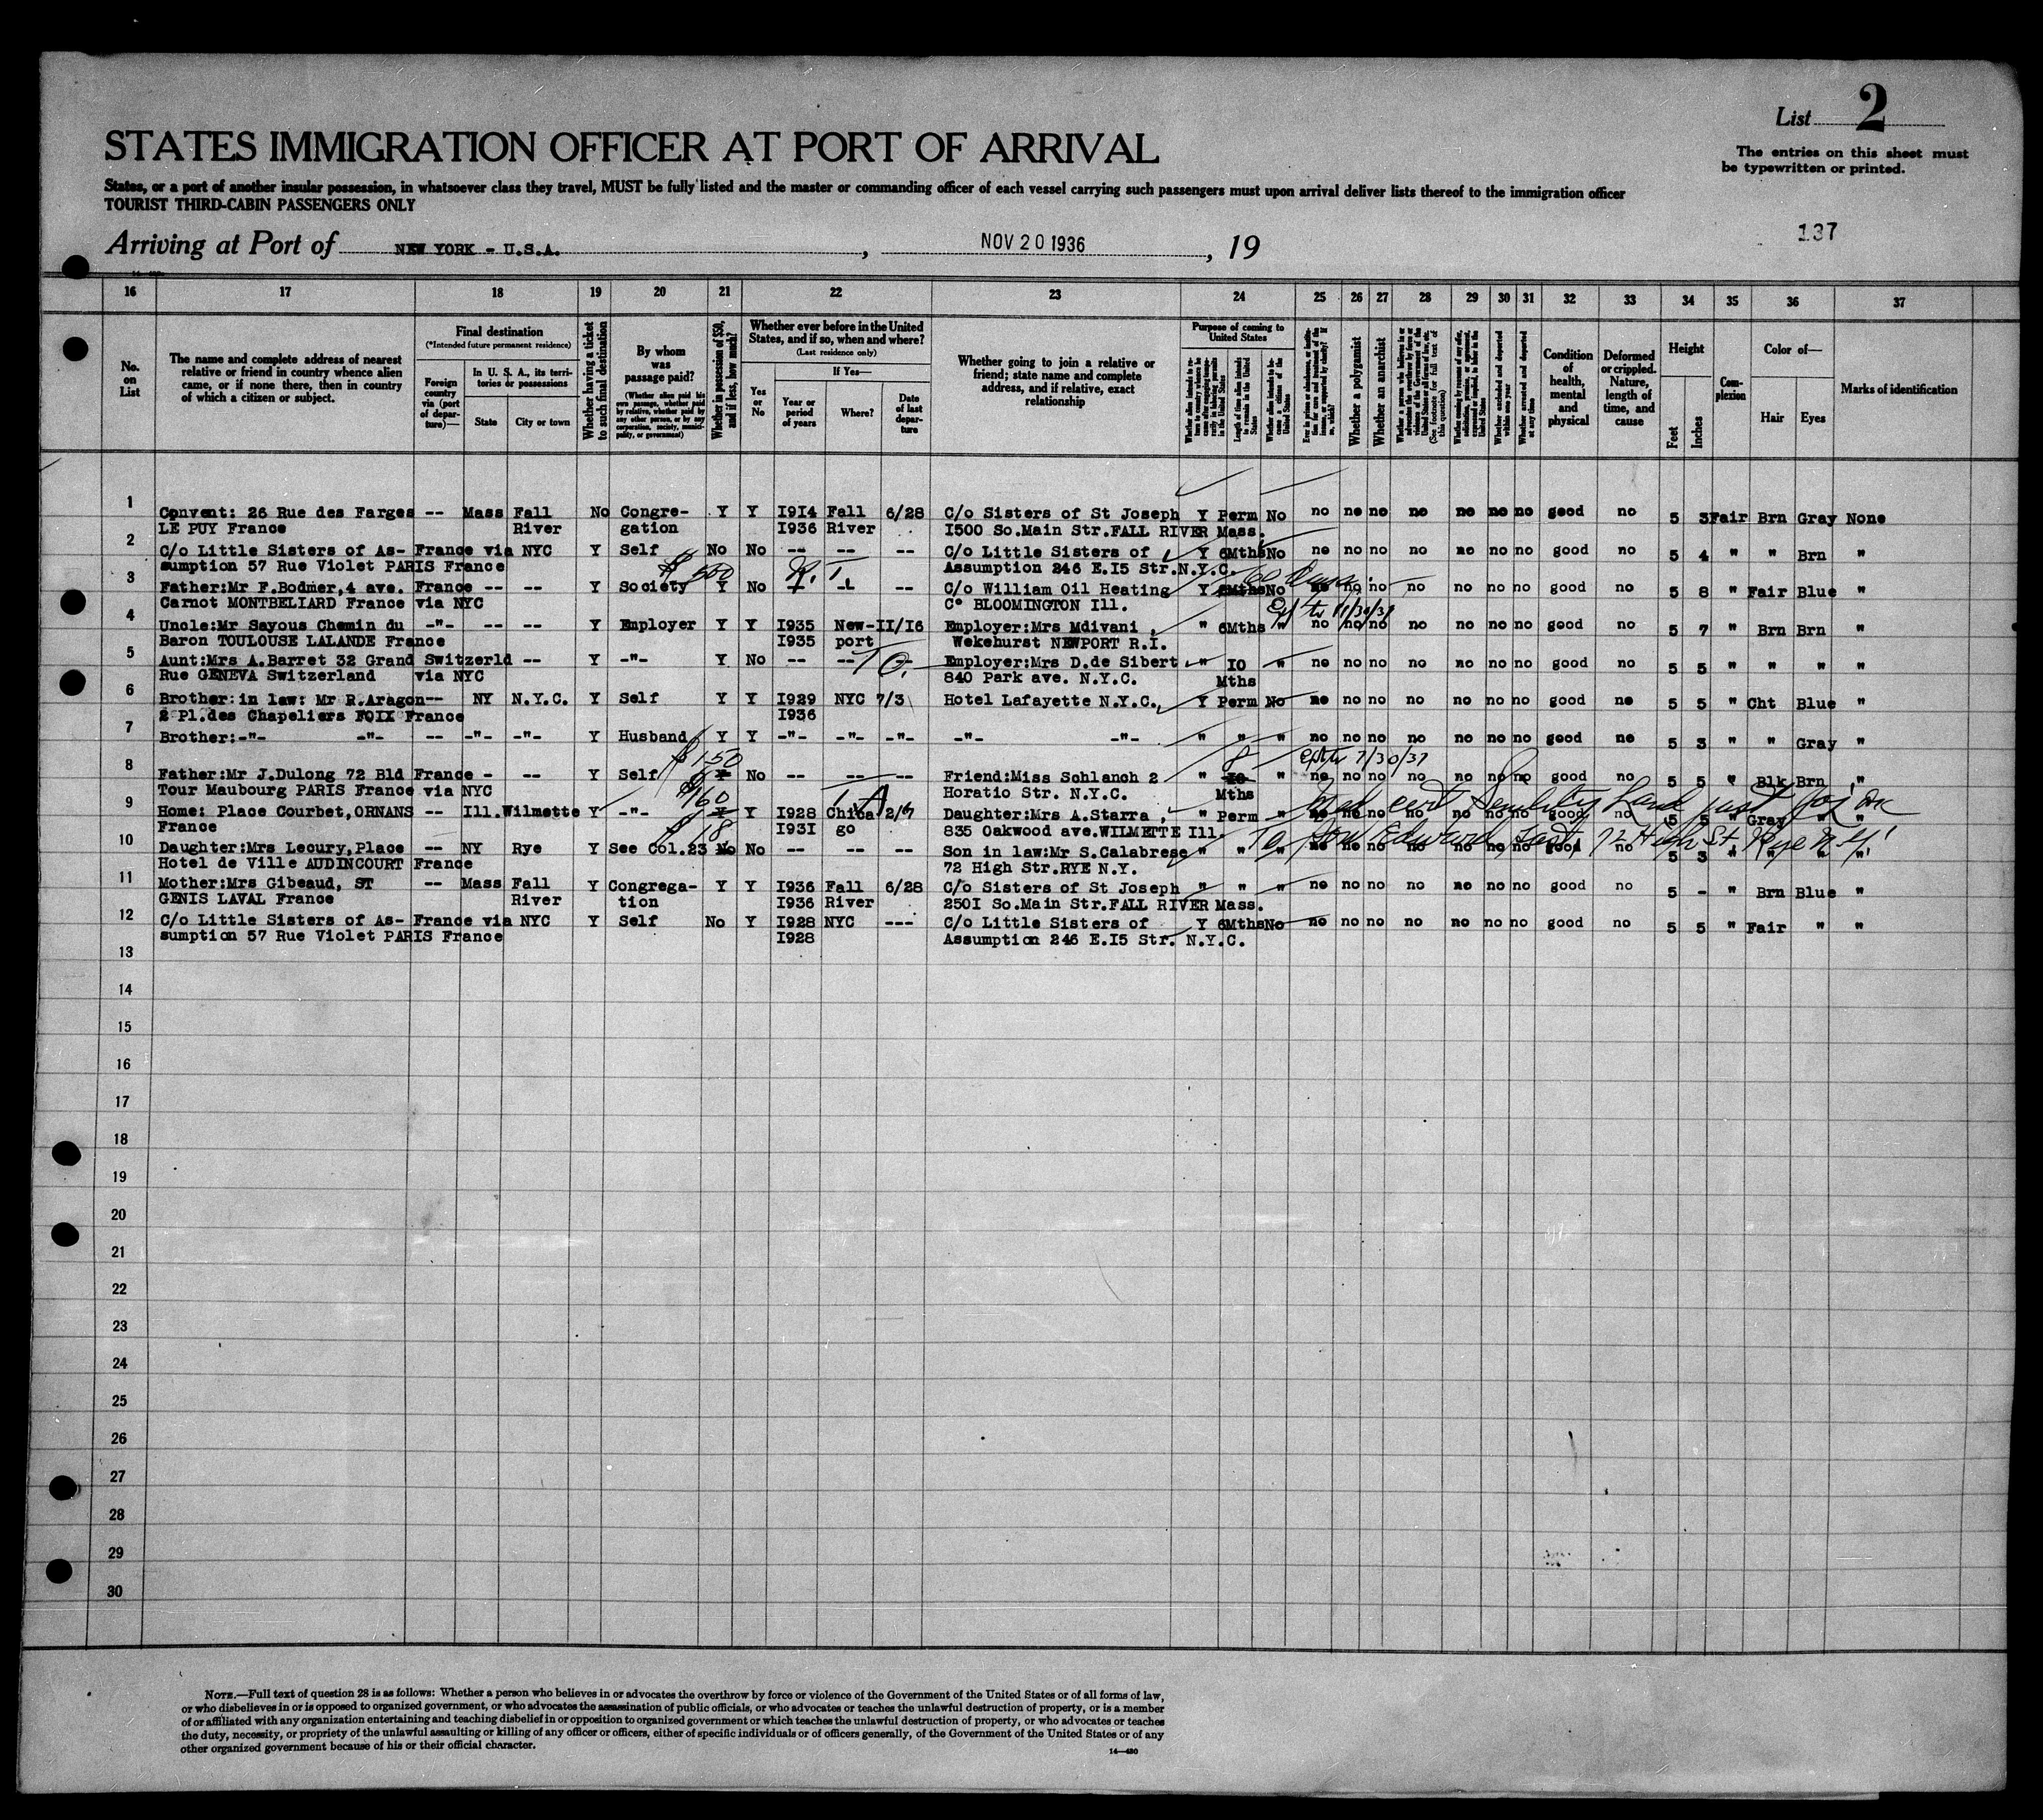 List 2
STATES IMMIGRATION OFFICER AT PORT OF ARRIVAL
The entries on this sheet must
be typewritten or printed.
States, or a port of another insular possession, in whatsoever class they travel, MUST be fully listed and the master or commanding officer of each vessel carrying such passengers must upon arrival deliver lists thereof to the immigration officer
TOURIST THIRD-CABIN PASSENGERS ONLY
137
Arriving at Port of NEW YORK - U.S.A. , NOV 20 1936 , 19
16 17 18 19 20 21 22 23 24 25 26 27 28 29 30 31 32 33 34 35 36 37
No. on List
The name and complete address of nearest relative or friend in country whence alien came, or if none there, then in country of which a citizen or subject.
Final destination
(*Intended future permanent residence)
Foreign country via (port of departure)—
In U. S. A., its territories or possessions
State City or town
Whether having a ticket to such final destination
By whom was passage paid?
(Whether alien paid his own passage, whether paid by relative, whether paid by any other person, or by any corporation, society, municipality, or government)
Whether in possession of $50, and if less, how much?
Whether ever before in the United States, and if so, when and where?
(Last residence only)
Yes or No
If Yes—
Year or period of years Where? Date of last departure
Whether going to join a relative or friend; state name and complete address, and if relative, exact relationship
Purpose of coming to United States
Length of time alien intends to remain in the United States
Whether a polygamist
Whether an anarchist
Whether excluded and deported within one year
Whether arrested and deported at any time
Condition of health, mental and physical
Deformed or crippled. Nature, length of time, and cause
Height
Feet Inches
Complexion
Color of—
Hair Eyes
Marks of identification
1 Convent: 26 Rue des Farges -- Mass Fall No Congre- Y Y I9I4 Fall 6/28 C/o Sisters of St Joseph Y Perm No no no no no no no no good no 5 3 Fair Brn Gray None
LE PUY France River gation I936 River I500 So.Main Str.FALL RIVER Mass.
2 C/o Little Sisters of As- France via NYC Y Self No No -- -- -- C/o Little Sisters of Y 6Mths No no no no no no no no good no 5 4 " " Brn "
sumption 57 Rue Violet PARIS France Assumption 246 E.I5 Str.N.Y.C.
$500 60 Days
3 Father:Mr F.Bodmer,4 ave. France -- -- Y Society Y No C/o William Oil Heating Y 6Mths No no no no no no no no good no 5 8 " Fair Blue "
Carnot MONTBELIARD France via NYC C° BLOOMINGTON Ill.
4 Uncle:Mr Sayous Chemin du -"- -- -- Y Employer Y Y I935 New- II/I6 Employer:Mrs Mdivani , " 6Mths " no no no no no no no good no 5 7 " Brn Brn "
Baron TOULOUSE LALANDE France I935 port Wekehurst NEWPORT R.I.
5 Aunt:Mrs A.Barret 32 Grand Switzerld -- Y -"- Y No -- -- Employer:Mrs D.de Sibert " I0 " no no no no no no no good no 5 5 " " " "
Rue GENEVA Switzerland via NYC 840 Park ave. N.Y.C. Mths
6 Brother in law: Mr R.Aragon -- NY N.Y.C. Y Self Y Y I929 NYC 7/3 Hotel Lafayette N.Y.C., Y Perm No no no no no no no no good no 5 5 " Cht Blue "
2 Pl.des Chapeliers FOIX France I936
7 Brother:-"- -"- -- -"- -"- Y Husband Y Y -"- -"- -"- -"- -"- " " " no no no no no no no good no 5 3 " " Gray "
$150 8 7/30/37
8 Father:Mr J.Dulong 72 Bld France - -- Y Self Y No -- -- -- Friend:Miss Schlanch 2 " I0 " no no no no no no no good no 5 5 " Blk Brn "
Tour Maubourg PARIS France via NYC Horatio Str. N.Y.C. Mths
$160 Med cert Senility
9 Home: Place Courbet,ORNANS -- Ill. Wilmette Y -"- Y Y I928 Chica 2/7 Daughter:Mrs A.Starra , " Perm " no no no no no no no good no 5 5 " Gray " "
France I93I go 835 Oakwood ave.WILMETTE Ill.
$18 To 72 High St Rye N.Y.
10 Daughter:Mrs Lecury,Place -- NY Rye Y See Col.23 No No -- -- -- Son in law:Mr S.Calabrese " " " no no no no no no no good no 5 3 " " " "
Hotel de Ville AUDINCOURT France 72 High Str.RYE N.Y.
11 Mother:Mrs Gibeaud, ST -- Mass Fall Y Congrega- Y Y I936 Fall 6/28 C/o Sisters of St Joseph " " " no no no no no no no good no 5 - " Brn Blue "
GENIS LAVAL France River tion I936 River 250I So.Main Str.FALL RIVER Mass.
12 C/o Little Sisters of As- France via NYC Y Self No Y I928 NYC --- C/o Little Sisters of Y 6Mths No no no no no no no no good no 5 5 " Fair " "
sumption 57 Rue Violet PARIS France I928 Assumption 246 E.I5 Str. N.Y.C.
13
14
15
16
17
18
19
20
21
22
23
24
25
26
27
28
29
30
NOTE.—Full text of question 28 is as follows: Whether a person who believes in or advocates the overthrow by force or violence of the Government of the United States or of all forms of law,
or who disbelieves in or is opposed to organized government, or who advocates the assassination of public officials, or who advocates or teaches the unlawful destruction of property, or is a member
of or affiliated with any organization entertaining and teaching disbelief in or opposition to organized government or which teaches the unlawful destruction of property, or who advocates or teaches
the duty, necessity, or propriety of the unlawful assaulting or killing of any officer or officers, either of specific individuals or of officers generally, of the Government of the United States or of any
other organized government because of his or their official character.
14—480